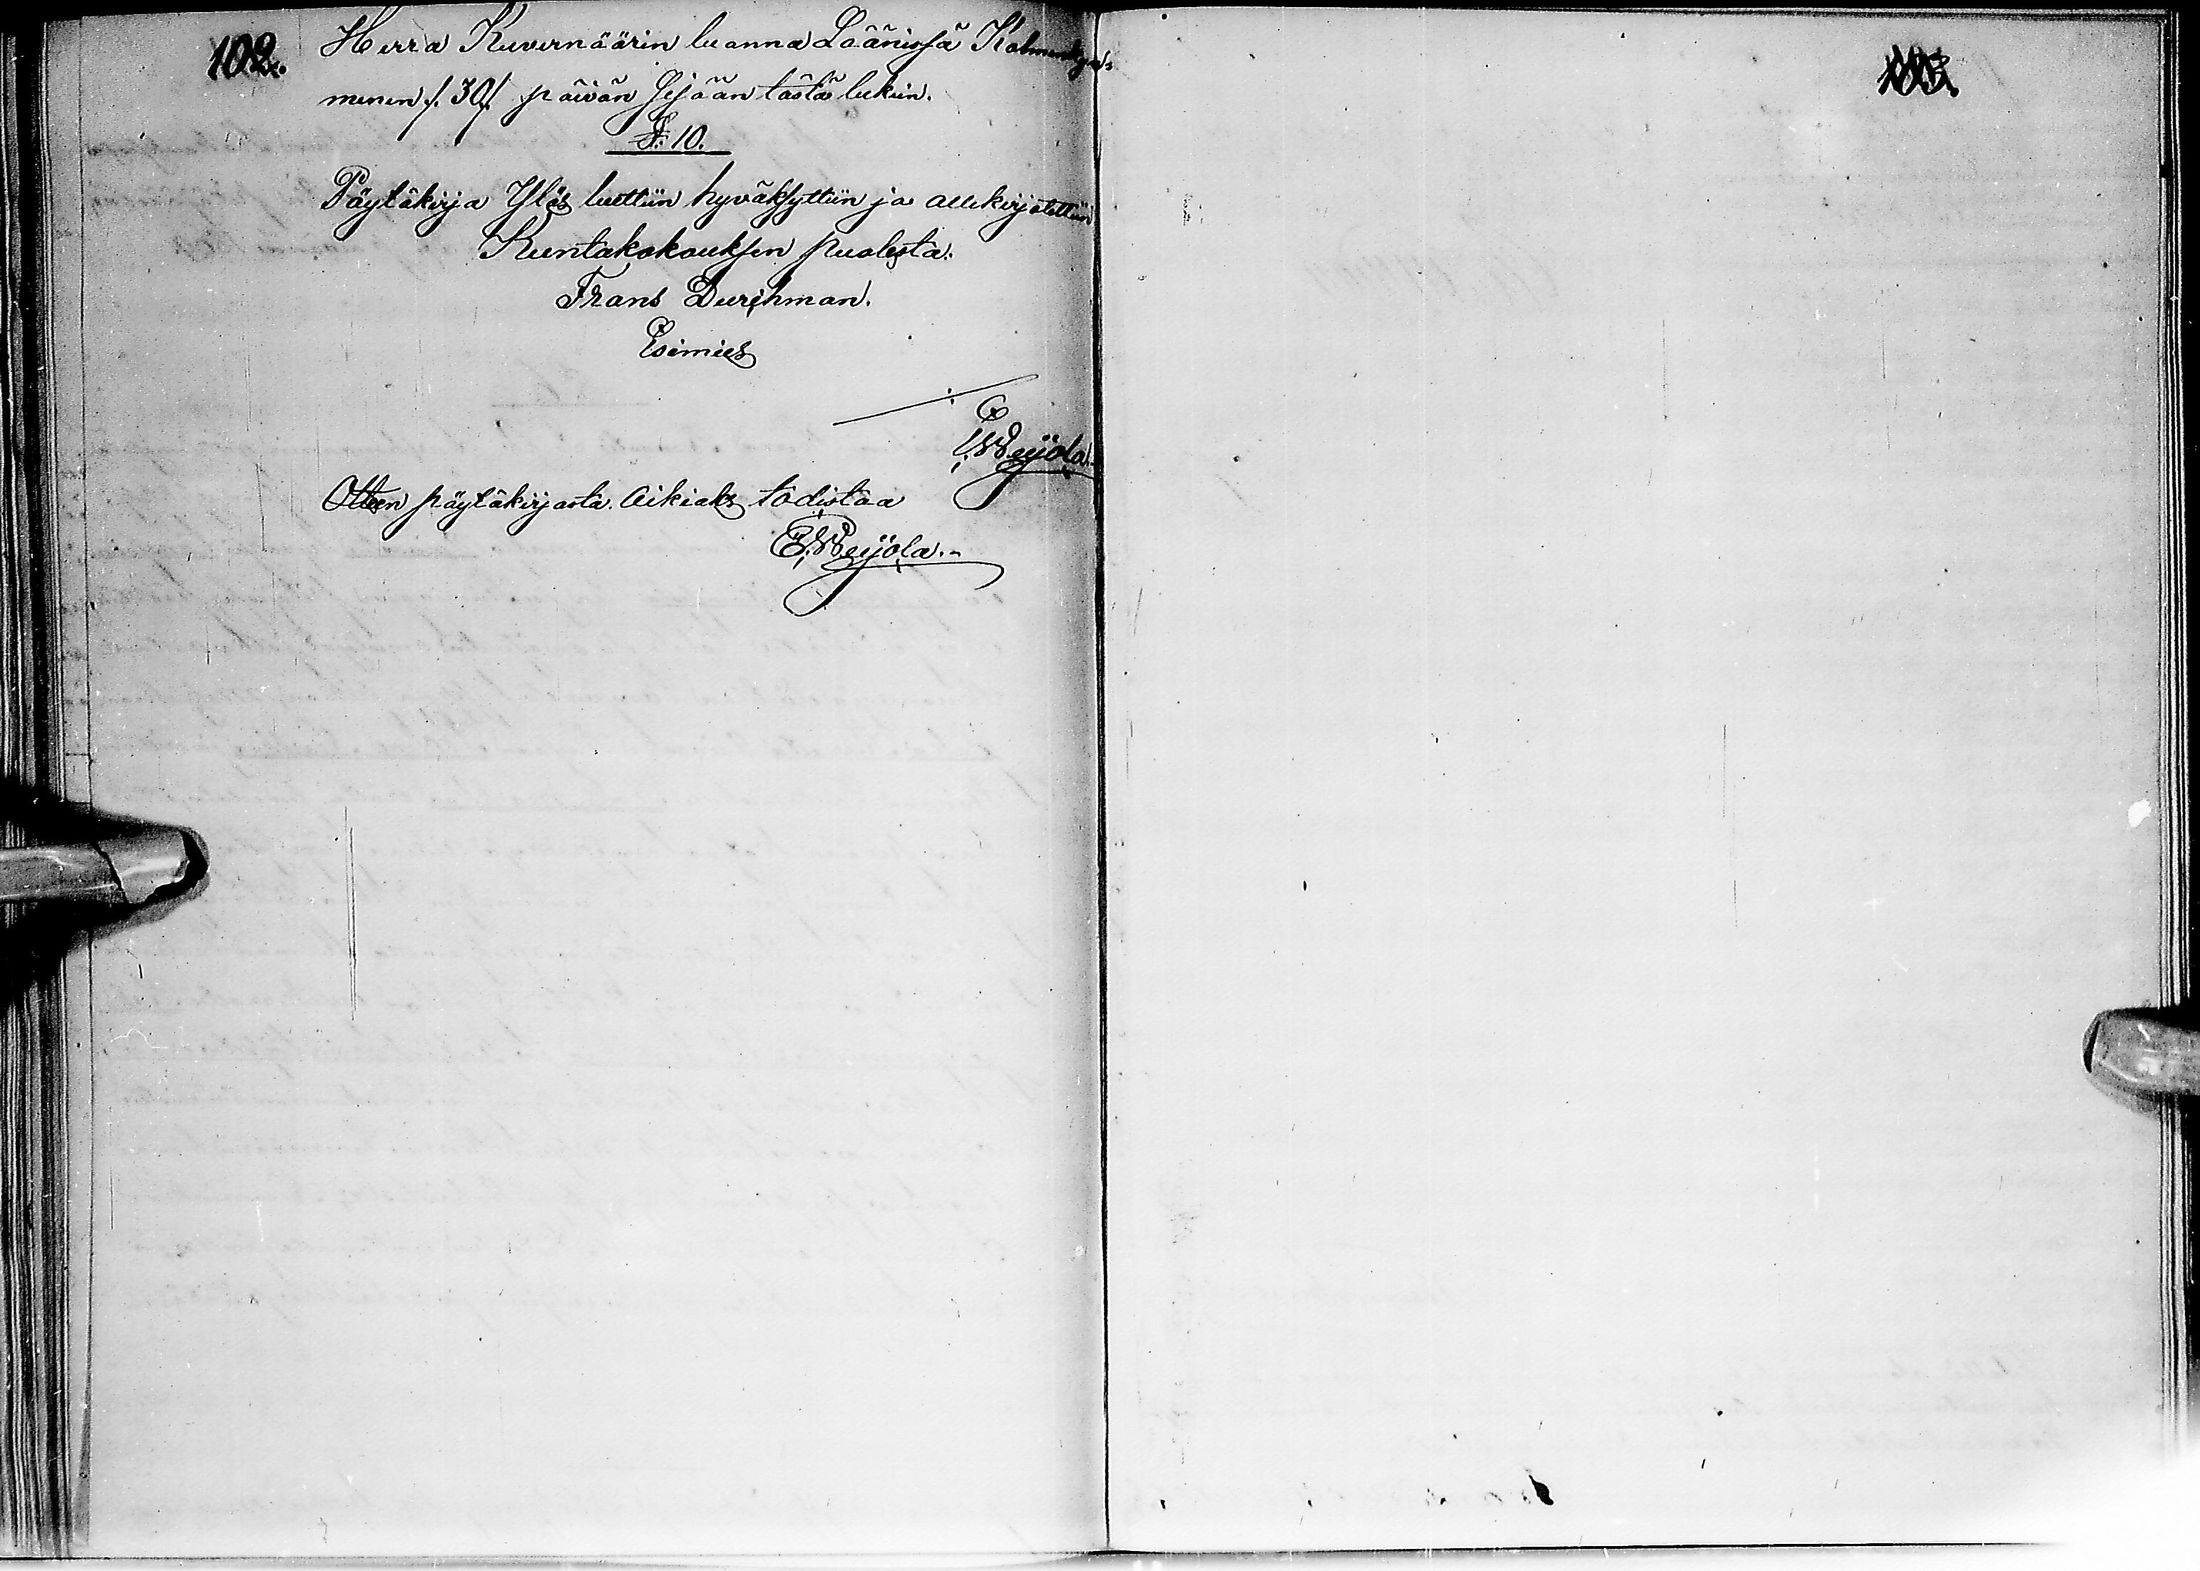 102.
Herra Kuvernöörin luonna Läänissä Kolmenky-
menen /: 30 :/ päivän sisään tästä lukein.
§: 10.
Pöytäkirja Ylös luettiin hyväksyttiin ja allekirjotettiin
Kuntakokouksen puolesta.
Frans Durchman.
Esimies
E. W. Peijola.
Otteen pöytäkirjasta oikiaks todistaa
E. W. Peijola.-
103.